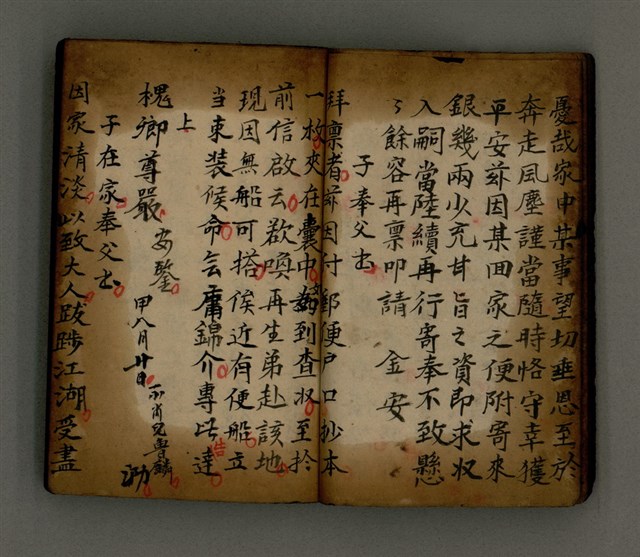 憂哉家中某事望切垂恩至於
奔走風塵謹當隨時恪守幸獲
平安茲因某回家之便附寄來
銀幾兩少充甘旨之資即求収
入嗣當陸續再行寄奉不致懸
〻餘容再禀叩請　金安
子奉父出
拜禀者茲因付郵便戶口抄本
一枚夾在囊中到查収至於
前信啟云欲喚再生弟赴該地
現因無船可搭俟近有便船立
當束裝候命云庸錦介專此達
告
上
槐鄉尊嚴　安鑒
甲八月廿日　不肖兒魯鱗　泐
子在家奉父出
因家清淡以致大人跋踄江湖受盡